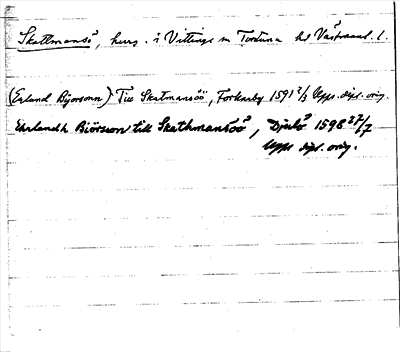 Skattmansö, herrg. i Vittinge sn Torstuna hd Västmanl. l.
(Erland Björsson) Till Skatmansöö, Forkarby 1591 2/3 Upps. dipl. orig.
Ehrlandh Biörsson till Skathmansöö, Djulö 1598 27/7
Upps dipl. orig.